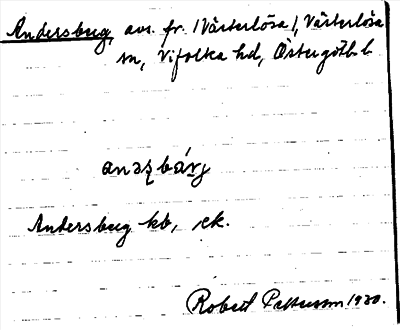 Andersberg, avs. fr. /Västerlösa/, Västerlösa
sn, Vifolka hd, Östergötl. l.
anəʂbárj
Andersberg kb, ek.
Robert Pettersson 1930.